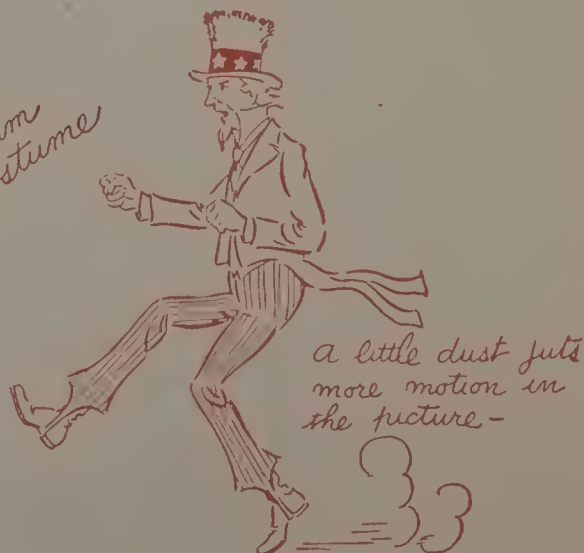 am
stume
a little dust puts
more motion in
the picture-